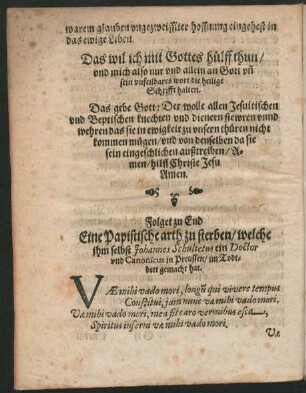 warem glauben vngezweiffelter hoffnung eingehest in
das ewige Leben.
Das wil ich mit Gottes hülff thun /
vnd mich also nur vnd allein an Gott vñ
sein vnfeilbares wort die heilige
Schrifft halten.
Das gebe Gott: Der wolle allen Jesuitischen
vnd Beptischen knechten vnd dienern stewren vnnd
wehren das sie in ewigkeit zu vnsern thüren nicht
kommen mügen / vnd von denselben da sie
sein eingeschlichen außtreiben / A-
men / hilff Christe Jesu
Amen.
Folget zu End
Eine Papistische arth zu sterben / welche
ihm selbst Johannes Schultetus ein Doctor
vnd Canonicus in Preussen / im Todt-
bett gemacht hat.
VÆ mihi vado mori, longũ qui vivere tempus
Constitui, jam nunc væ mihi vado mori.
Væ mihi vado mori, mea fit caro vermibus esca,
Spiritus inferni væ mihi vado mori.
Væ